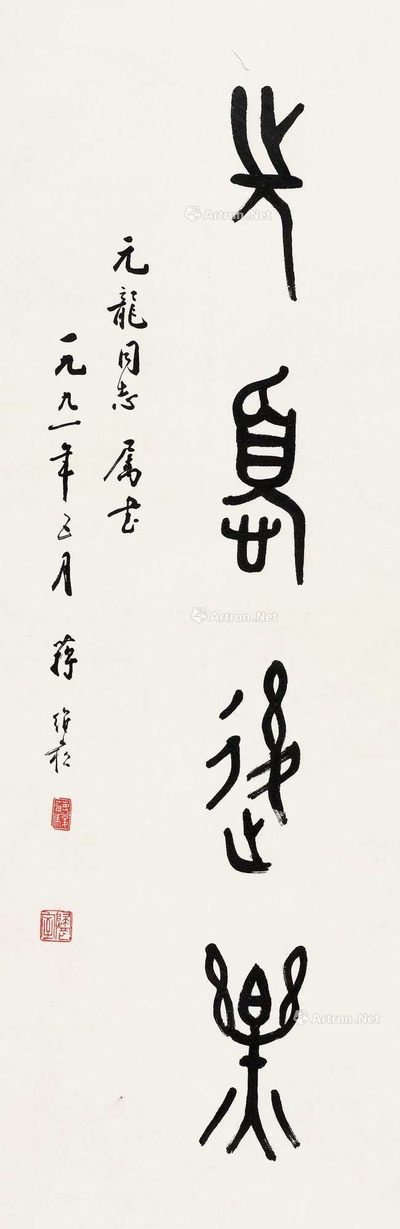 先憂後樂
元龍同志属书
一九九一年三月 蒋维崧
Artron.Net
Artron.Net
Artron.Net